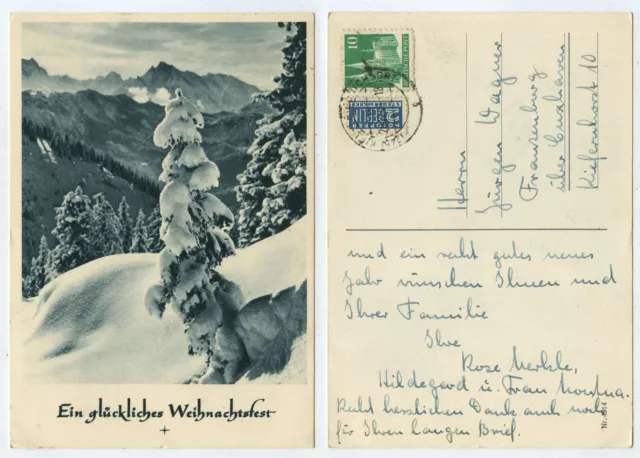 Ein glückliches Weihnachtsfest
10
2
BERLIN
NOTOPFER
STEUERMARKE
Herrn
Jürgen Dagner
Franzenburg
über Cuxhaven
Kiefernhorst 10
und ein recht gutes neues
Jahr wünschen Ihnen und
Ihrer Familie
Ihre
Rose Merkle,
Hildegard u. Frau
Recht herzlichen Dank auch noch
für Ihren langen Brief.
Nr.